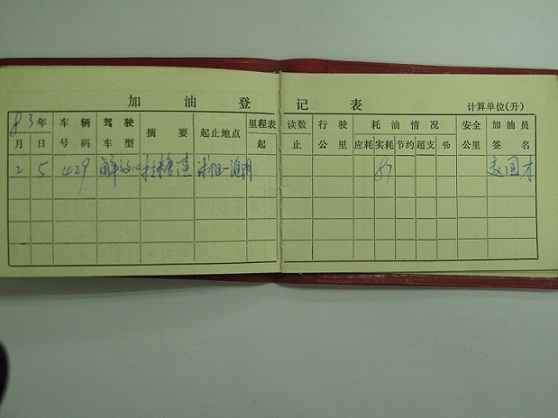 加油登记表
计算单位(升)
83年 车辆 驾驶 摘要 起止地点 里程表读数 行驶 耗油情况 安全 加油员
月 日 号码 车型 起 止 公里 应耗 实耗 节约 超支 % 公里 签名
2 5 429 解放